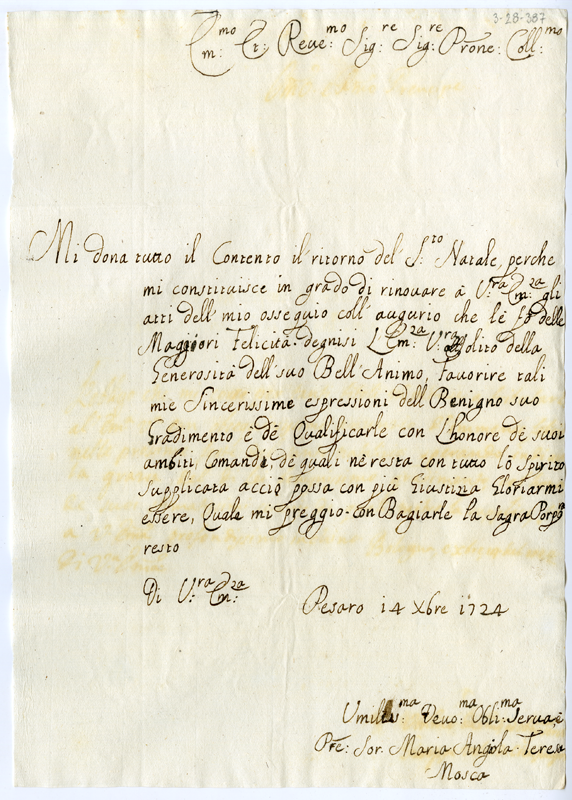 3-28-387
Em:mo Et: Reue:mo Sig:re Sig:re Prone: Coll:mo
Mi dona tutto il Contento il ritorno del S:to Natale, perche
mi constituisce in grado di rinouare à V:ra Em:za gli
atti dell mio ossequio coll' augurio che lè fò delle
Maggiori Felicità degnisi L'Em:za V:ra solito della
Generosità dell' suo Bell' Animo, fauorire tali
mie Sincerissime espressioni dell Benigno suo
Gradimento è dè Qualificarle con L'honore dè suoi
ambiti, Comandi, dè quali nè resta con tutto lò Spirito
Supplicata acciò possa con più Giustizia Gloriarmi
essere, Quale mi preggio con Bagiarle la Sagra Porp:a
resto
Di V:ra Em:za
Pesaro 14 Xbre 1724
Umilis:ma Deuo:ma Obli:ma Serua, è
Sor. Maria Angiola Teresa
Mosca